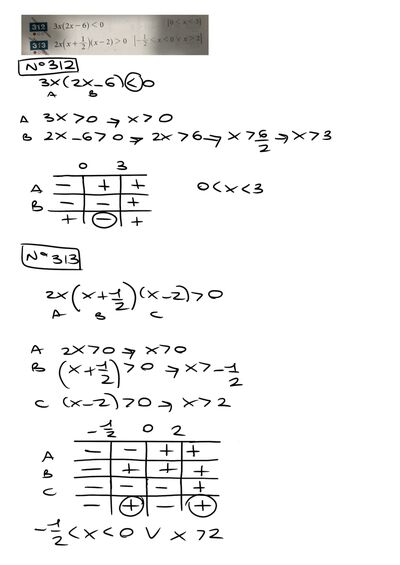 312 3x(2x−6)<0 [0<x<3]
313 2x(x+1/2)(x−2)>0 [−1/2<x<0 ∨ x>2]
N° 312
3x(2x−6)<0
A B
A 3x>0 → x>0
B 2x−6>0 → 2x>6 → x>6/2 → x>3
0 3
A − + +
B − − +
+ − +
0<x<3
N° 313
2x(x+1/2)(x−2)>0
A B C
A 2x>0 → x>0
B (x+1/2)>0 → x>−1/2
C (x−2)>0 → x>2
−1/2 0 2
A − − + +
B − + + +
C − − − +
− + − +
−1/2<x<0 ∨ x>2